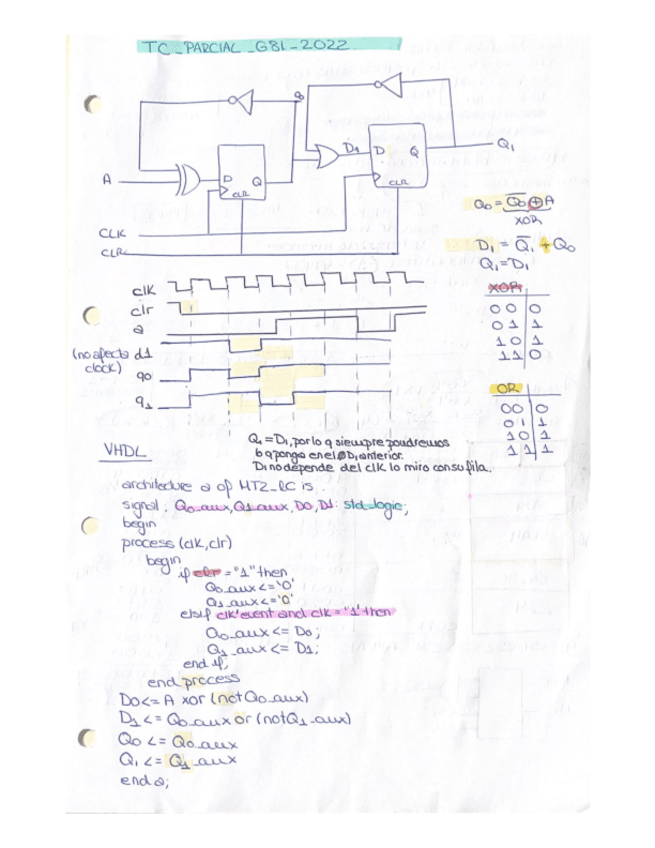 TC_PARCIAL_G81_2022
Q0
D1
D Q
Q1
A
D Q
CLR
CLR
CLK
CLR
Q0 = Q̅0 ⊕ A
XOR
D1 = Q̅1 + Q0
Q1 = D1
clk
clr
a
(no afecta d1
clock)
q0
q1
XOR
0 0 0
0 1 1
1 0 1
1 1 0
OR
0 0 0
0 1 1
1 0 1
1 1 1
Q1 = D1, por lo q siempre pondremos
lo q ponga en el D1 anterior.
D1 no depende del clk lo miro con su fila.
VHDL
architecture a of MT2_LC is
signal: Q0_aux, Q1_aux, D0, D1: std_logic;
begin
process (clk, clr)
begin
if clr = "1" then
Q0_aux <= '0'
Q1_aux <= '0'
elsif clk'event and clk = "1" then
Q0_aux <= D0;
Q1_aux <= D1;
end if;
end process
D0 <= A xor (not Q0_aux)
D1 <= Q0_aux or (not Q1_aux)
Q0 <= Q0_aux
Q1 <= Q1_aux
end a;